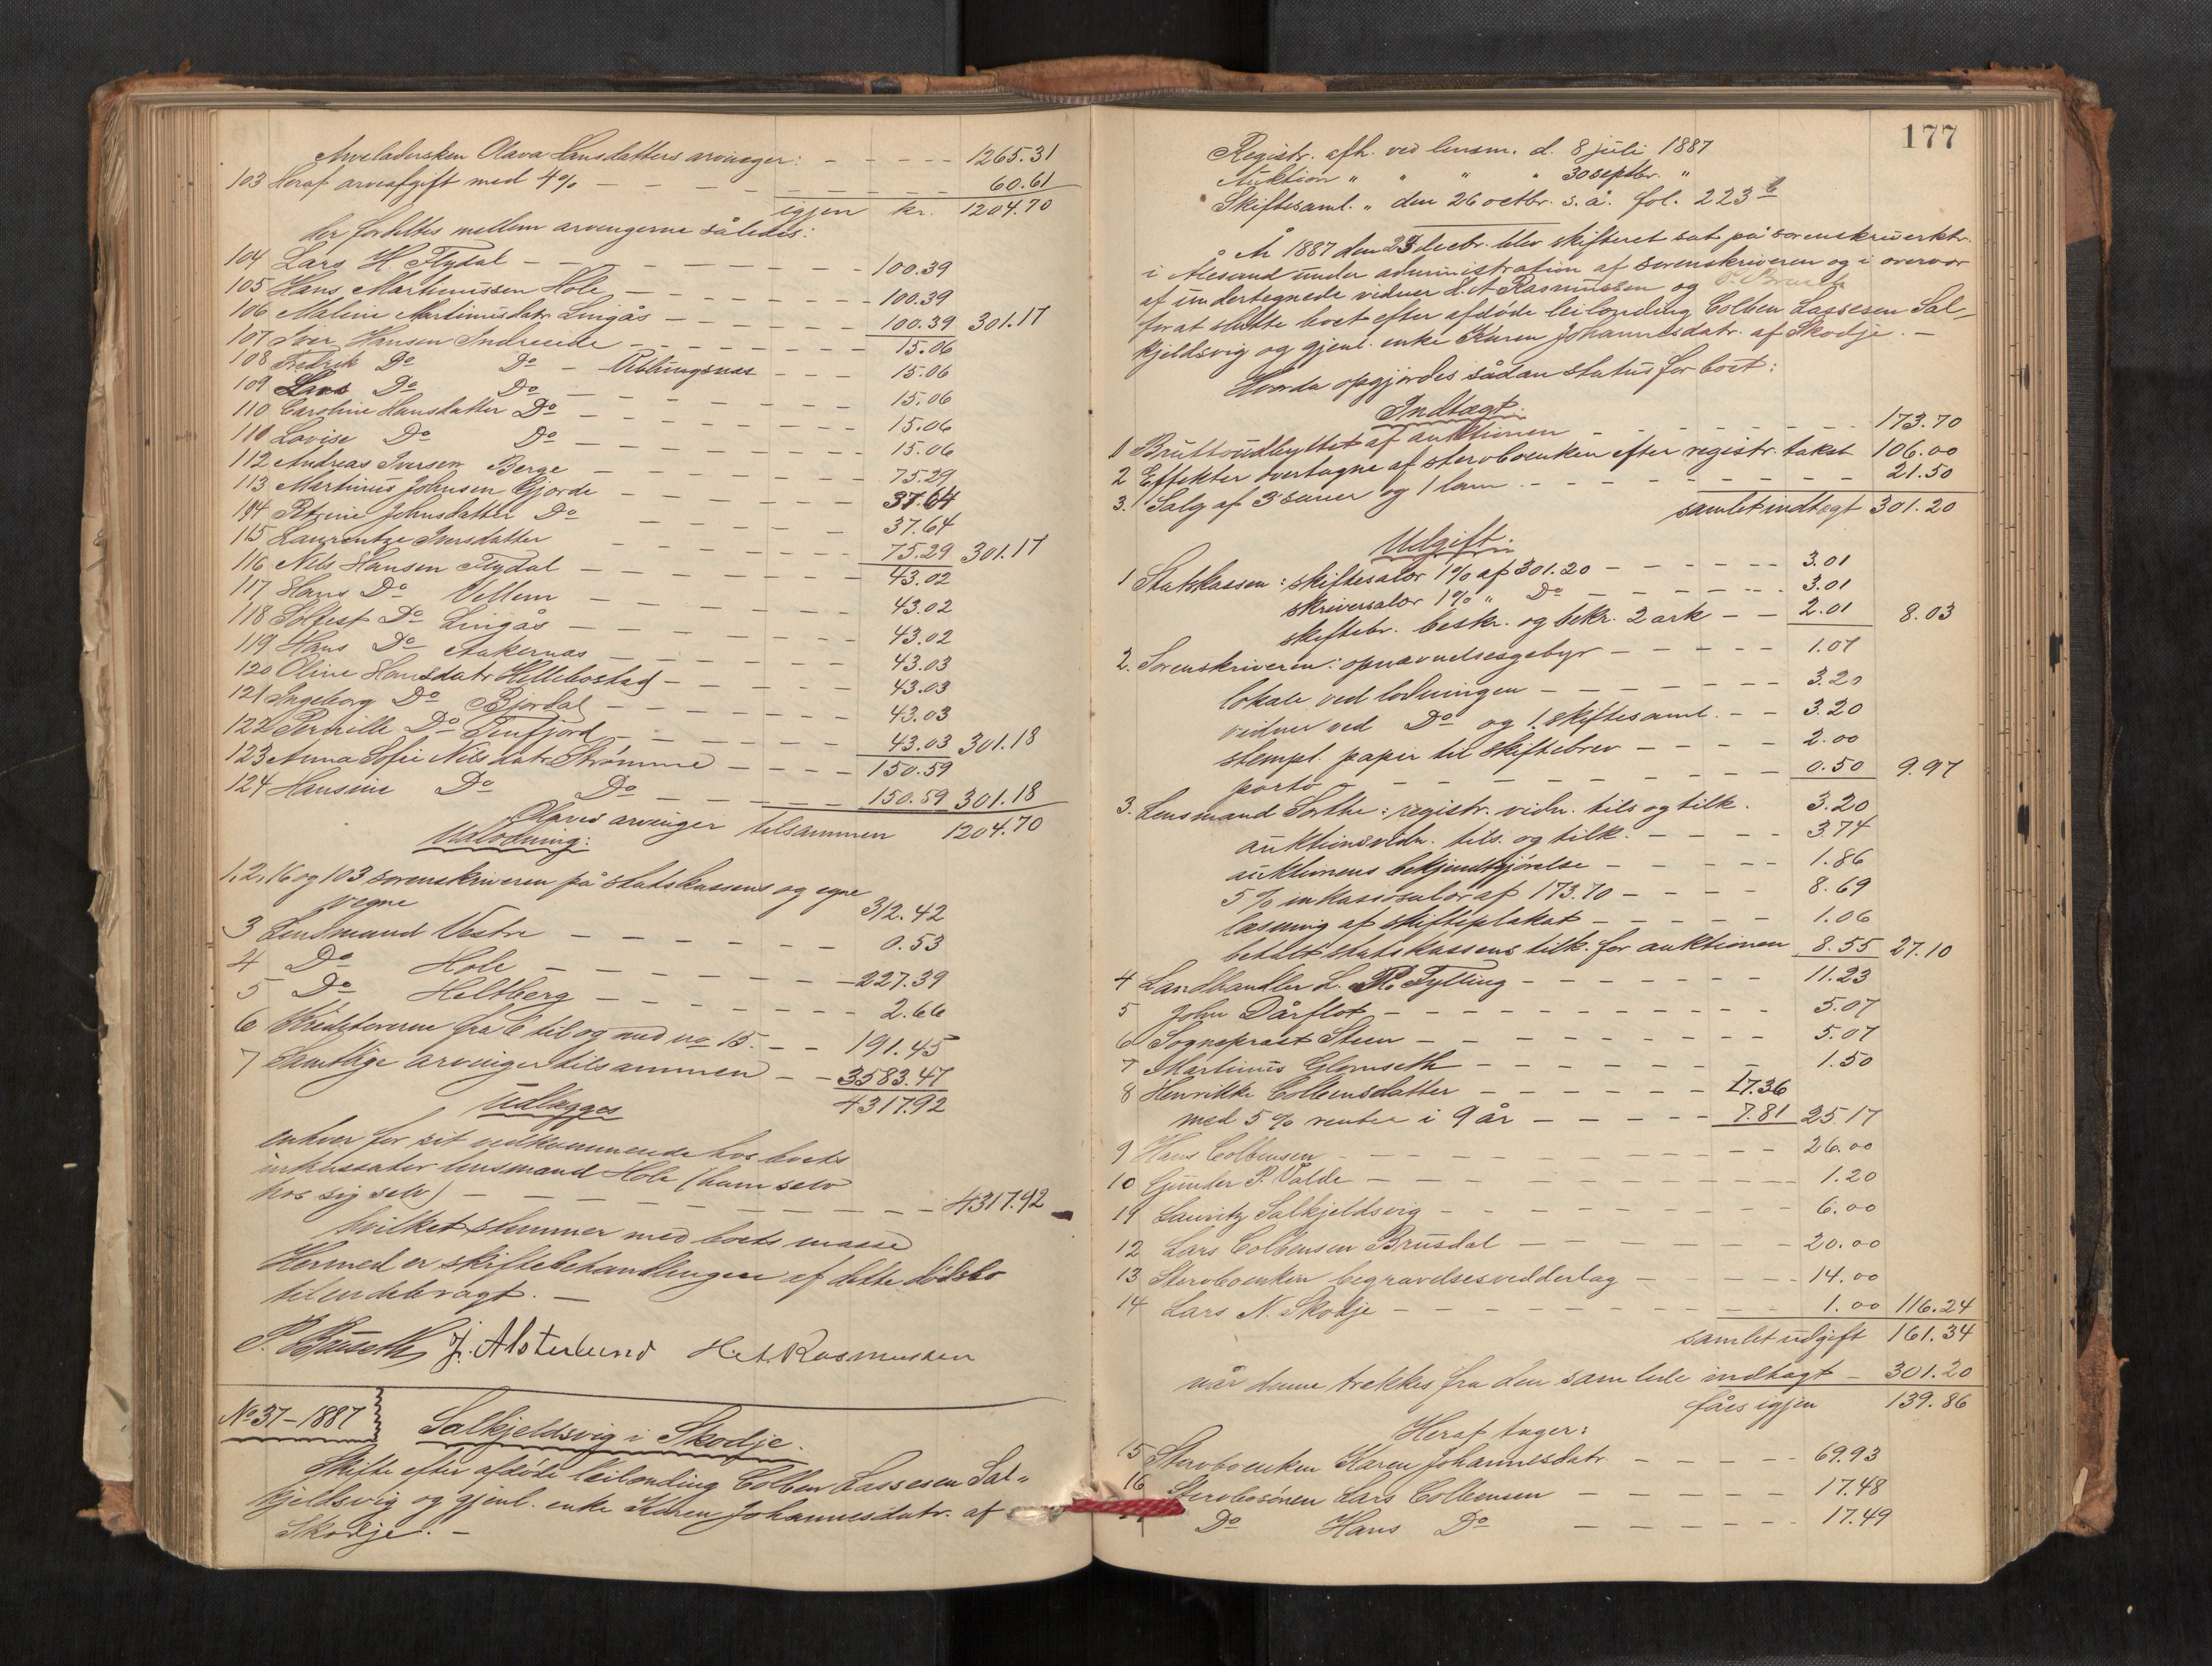 Arveladersken Olava Hansdatters arvinger: - - - - - 1265.31
103 Heraf arveafgift med 4% - - - - - 60.61
igjen kr. 1204.70
der fordeltes mellem arvingerne således:
104 Lars H Flydal - - - - - 100.39
105 Hans Martinussen Hole - - - - - 100.39
106 Maline Martinusdatr Lingås - - - - - 100.39 301.17
107 Iver Hansen Indreeide - - - - - 15.06
108 Fredrik Do Do - Veblungsnæs - - - 15.06
109 Lars Do Do - - - - - 15.06
110 Caroline Hansdatter Do - - - - - 15.06
110 Lovise Do Do - - - - - 15.06
112 Andreas Iversen Berge - - - - - 75.29
113 Martinus Johnsen Gjørde - - - - - 37.64
114 Petrine Johnsdatter Do - - - - - 37.64
115 Laurentze Iversdatter - - - - - 75.29 301.17
116 Nils Hansen Flydal - - - - - 43.02
117 Hans Do Vellem - - - - - 43.02
118 Solfest Do Lingås - - - - - 43.02
119 Hans Do Aakernæs - - - - - 43.03
120 Oline Hansdatr Hellebostad - - - - - 43.03
121 Ingeborg Do Bjørdal - - - - - 43.03
122 Pernille Do Tenfjord - - - - - 43.03 301.18
123 Anna Sofie Nilsdatr Strømme - - - - 150.59
124 Hansine Do Do - - - - - 150.59 301.18
Olaves arvinger tilsammen 1204.70
Udlodning:
1, 2, 16 og 103 sorenskriveren på statskassens og egne
vegne 312.42
3 Lensmand Vestre - - - - - 0.53
4 Do Hole - - - - - 227.39
5 Do Heltberg - - - - - 2.66
6 Kreditorerne fra 6 til og med no 15. - - 191.45
7 Samtlige arvinger tilsammen - - 3583.47
Udlægges 4317.92
enhver for sit vedkommende hos boets
inkassator lensmand Hole (ham selv
hos sig selv) - - - - - 4317.92
hvilket stemmer med boets masse
Hermed er skiftebehandlingen af dette dødsbo
tilendebragt. -
J. Alsterlund H.A. Rasmussen
No 37 - 1887
Salkjeldsvig i Skodje.
Skifte efter afdøde leilænding Colben Lassesen Sal-
kjeldsvig og gjenl. enke Karen Johannesdatr. af
Skodje. -
177
Registr. afh. ved lensm. d. 8 juli 1887
Auktion " " " " 30 septbr. "
Skiftesaml. " den 26 octbr. s. å. fol. 223 b
År 1887 den 23 decbr. blev skifteret sat på sorenskriverktr.
i Alesund under administration af sorenskriveren og i overvær
af undertegnede vidner H. A Rasmussen og
forat slutte boet efter afdøde leilænding Colben Lassesen Sal-
kjeldsvig og gjenl. enke Karen Johannesdatr. af Skodje. -
Hvorda opgjordes sådan status for boet:
Indtægt.
1 Bruttoudbyttet af auktionen - - - - - 173.70
2 Effekter overtagne af stervboenken efter registr. takst 106.00
3. Salg af 3 sauer og 1 lam - - - - - 21.50
samlet indtægt 301.20
Udgift.
1 Statskassen: skiftesalær 1% af 301.20 - - - - - 3.01
skriversalær 1% " Do - - - - - 3.01
skiftebr. beskr. og bekr. 2 ark - - 2.01 8.03
2. Sorenskriveren: opnævnelsesgebyr - - - - - 1.07
lokale ved lodningen - - - - - 3.20
vidner ved Do og 1 skiftesaml. - - 3.20
stempl. papir til skiftebrev - - - - 2.00
porto - - - - - 0.50 9.97
3. Lensmand Sorthe: registr. vidn. tils og tilk. 3.20
auktionsvidn. tils. og tilk. - - - - 3.74
auktionens bekjendtgjørelse - - - - - 1.86
5% inkassosalær af 173.70 - - - - 8.69
læsning af skifteplakat - - - - - 1.06
betalt statskassens tilk. for auktionen 8.55 27.10
4 Landhandler L. R. Tylling - - - - - 11.23
5 John Dårflot - - - - - 5.07
6 Sognepræst Steen - - - - - 5.07
7 Martinus Glomseth - - - - - 1.50
8 Henrikke Colbensdatter - - - - - 17.36
med 5% renter i 9 år - - - - - 7.81 25.17
9 Hans Colbensen - - - - - 26.00
10 Gunder P. Valde - - - - - 1.20
11 Lauritz Salkjeldsvig - - - - - 6.00
12 Lars Colbensen Brusdal - - - - - 20.00
13 Stervboenken begravelsesvedderlag - - - - - 14.00
14 Lars N. Skodje - - - - - 1.00 116.24
samlet udgift 161.34
når denne trækkes fra den samlede indtægt - 301.20
fåes igjen 139.86
Heraf tager:
15 Stervboenken Karen Johannesdatr - - - - - 69.93
16 Stervbosønen Lars Colbensen - - - - - 17.48
Do Hans Do - - - - - 17.49